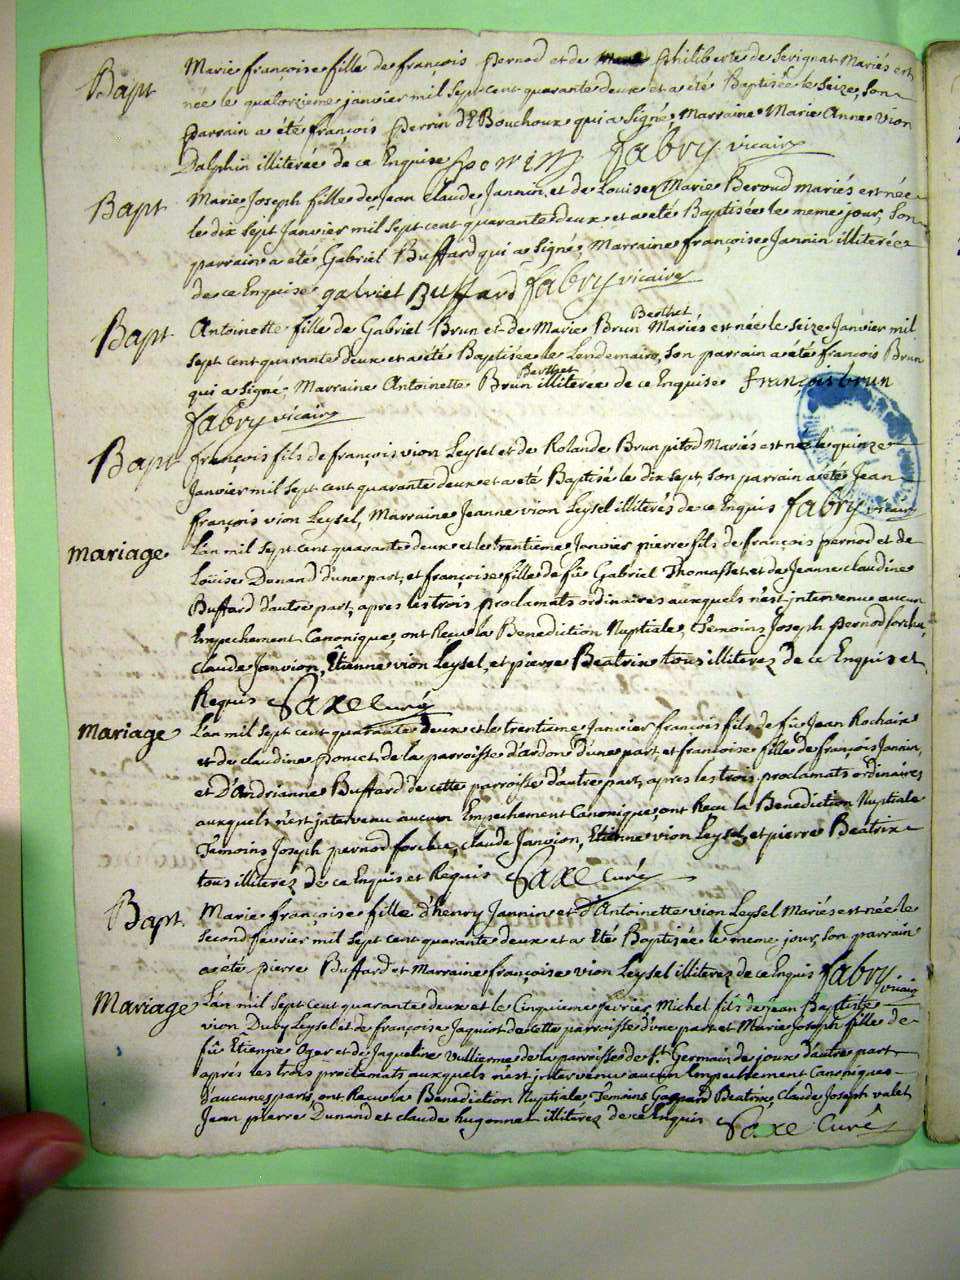 Bapt Marie françoise fille de françois pernod et de Philiberte de Sevignat Mariés est
née le quatorzieme janvier mil Sept cent quarante deux et a été Baptisée le Seize, Son
parrain a été françois perrin d'E Bouchoux qui a Signé Marraine Marie Anne vion
Dalphin illiterée de ce Enquise perrin fabry vicaire
Bapt Marie Joseph fille de Jean claude Jannin et de Louise Marie Beroud mariés est née
le dix Sept Janvier mil Sept cent quarante deux et a été Baptisée le meme jour, Son
parrain a été Gabriel Buffard qui a Signé Marraine françoise Jannin illiterée
de ce Enquise gabriel Buffard fabry vicaire
Berthet
Bapt Antoinette fille de Gabriel Brun et de Marie Brun Mariés est née le Seize Janvier mil
Sept cent quarante deux et a été Baptisée le Lendemain, Son parrain a été françois Brun
Berthet
qui a Signé, Marraine Antoinette Brun illiterée de ce Enquise françois brun
fabry vicaire
Bapt françois fils de françois vion Leysel et de Rolande Brun pitod Mariés est né le quinze
Janvier mil Sept cent quarante deux et a été Baptisé le dix Sept, Son parrain a été Jean
françois vion Leysel, Marraine Jeanne vion Leysel illiterés de ce Enquis fabry vicaire
Mariage L'an mil Sept cent quarante deux et le trentieme Janvier pierre fils de françois pernod et de
Loüise Dunand d'une part, et françoise fille de fû Gabriel Thomasset et de Jeanne claudine
Buffard d'autre part, apres les trois proclamats ordinaires auxquels n'est jntervenu aucun
Empechement Canonique, ont Reçu la Benediction Nuptiale, Temoins Joseph pernod forclue,
claude Janvion, Étienne vion Leysel, et pierre Beatrix tous illiterez de ce Enquis et
Requis Saxe Curé
Mariage L'an mil Sept cent quarante deux et le trentieme Janvier françois fils de fû Jean Rochaix
et de claudine poncet de la parroisse d'ardon d'une part, et francoise fille de françois Jannin,
et D'Andrianne Buffard de cette parroisse d'autre part, apres les trois proclamats ordinaires
auxquels n'est jntervenu aucun Empechement Canonique, ont Recu la Benediction Nuptiale
Temoins Joseph pernod forclue, claude Janvion, Etienne vion Leysel, et pierre Beatrix
tous illiterez de ce Enquis et Requis Saxe Curé
Bapt. Marie françoise fille d'henry Jannin et d'Antoinette vion Leysel Mariés est née le
Second fevrier mil Sept cent quarante deux et a Eté Baptisée le meme jour, Son parrain
a été pierre Buffard et Marraine françoise vion Leysel illiterez de ce Enquis fabry vicaire
Mariage L'an mil Sept cent quarante deux et le Cinquieme fevrier Michel fils de Jean Baptiste
vion Duby Leysel et de françoise Jaquiot de cette parroisse d'une part et Marie Joseph fille de
fû Etienne Oger et de Jaqueline Vullierme de la parroisse de St Germain de joux d'autre part
apres les trois proclamats auxquels n'est jntervenu aucun Empechement Canonique
d'aucunes parts, ont Recu la Benediction Nuptiale Temoins Gaspard Beatrix, Claude Joseph valet
Jean pierre Dunand et claude hugonnet illiterez de ce Enquis Saxe Curé